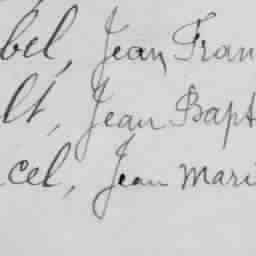 bel, Jean Fran
lt, Jean Bapt
cel, Jean Mari